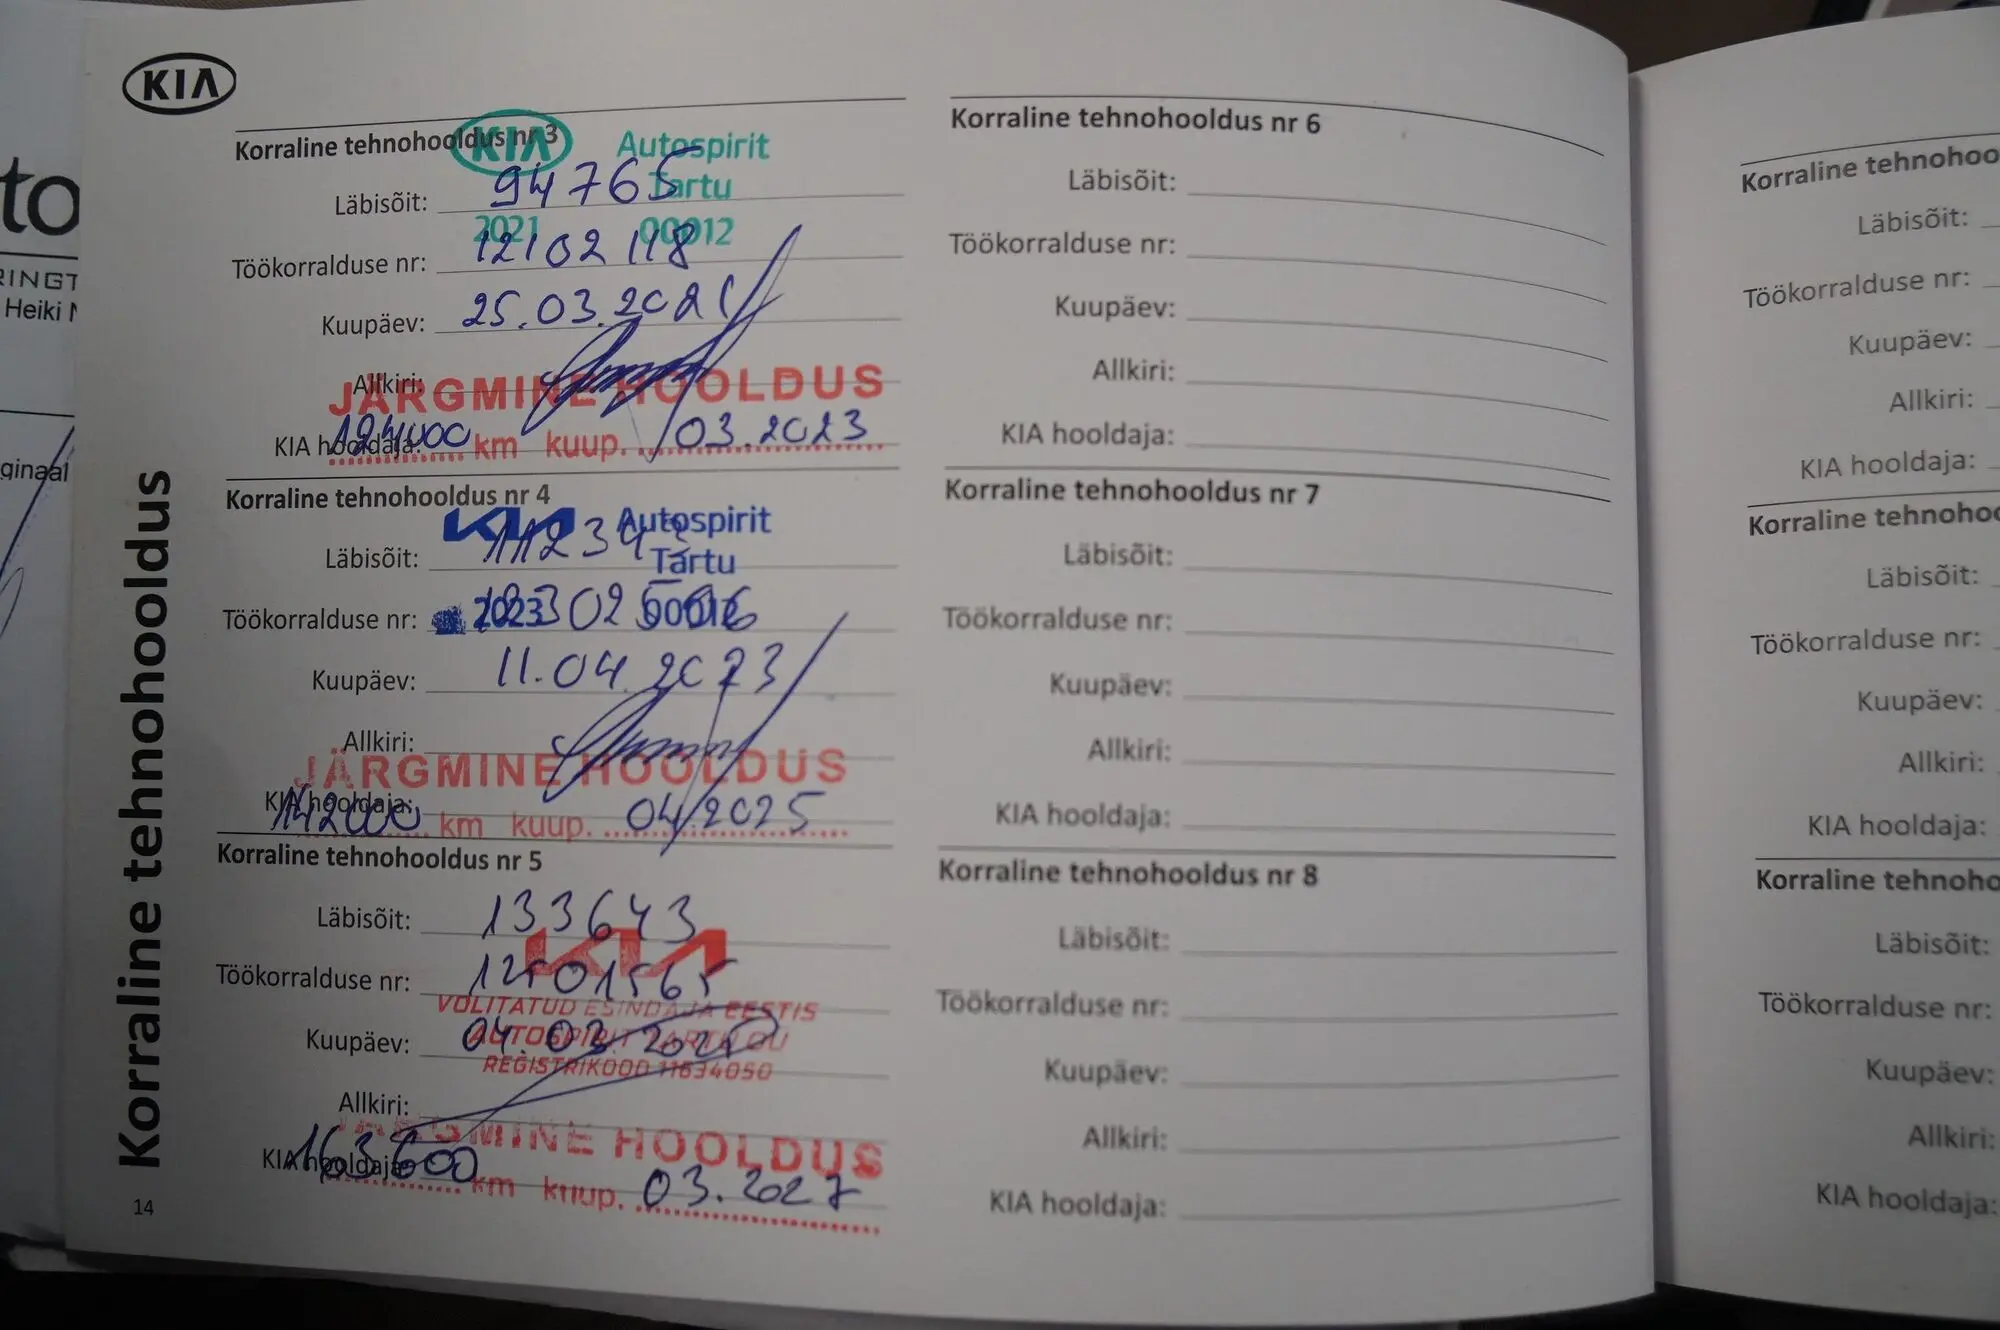 to
RINGT
Heiki
ginaal
KIA
Korraline tehnohooldus
14
Korraline tehnohooldus nr 3
KIA Autospirit
Tartu
2021 00012
Läbisõit: 94765
Töökorralduse nr: 12102118
Kuupäev: 25.03.2021
Allkiri:
JÄRGMINE HOOLDUS
KIA hooldaja:
124000 km kuup. 03.2023
Korraline tehnohooldus nr 4
KIA Autospirit
Tartu
2023 00012
Läbisõit:
Töökorralduse nr:
Kuupäev: 11.04.2023
Allkiri:
JÄRGMINE HOOLDUS
KIA hooldaja:
142000 km kuup. 04/2025
Korraline tehnohooldus nr 5
Läbisõit: 133643
KIA
Töökorralduse nr: 12501565
VOLITATUD ESINDAJA EESTIS
AUTOSPIRIT TARTU OÜ
REGISTRIKOOD 11634050
Kuupäev: 04.03.2025
Allkiri:
JÄRGMINE HOOLDUS
KIA hooldaja:
163600 km kuup. 03.2027
Korraline tehnohooldus nr 6
Läbisõit:
Töökorralduse nr:
Kuupäev:
Allkiri:
KIA hooldaja:
Korraline tehnohooldus nr 7
Läbisõit:
Töökorralduse nr:
Kuupäev:
Allkiri:
KIA hooldaja:
Korraline tehnohooldus nr 8
Läbisõit:
Töökorralduse nr:
Kuupäev:
Allkiri:
KIA hooldaja:
Korraline tehnohoo
Läbisõit:
Töökorralduse nr:
Kuupäev:
Allkiri:
KIA hooldaja:
Korraline tehnohoo
Läbisõit:
Töökorralduse nr:
Kuupäev:
Allkiri:
KIA hooldaja:
Korraline tehnoho
Läbisõit:
Töökorralduse nr:
Kuupäev:
Allkiri:
KIA hooldaja: